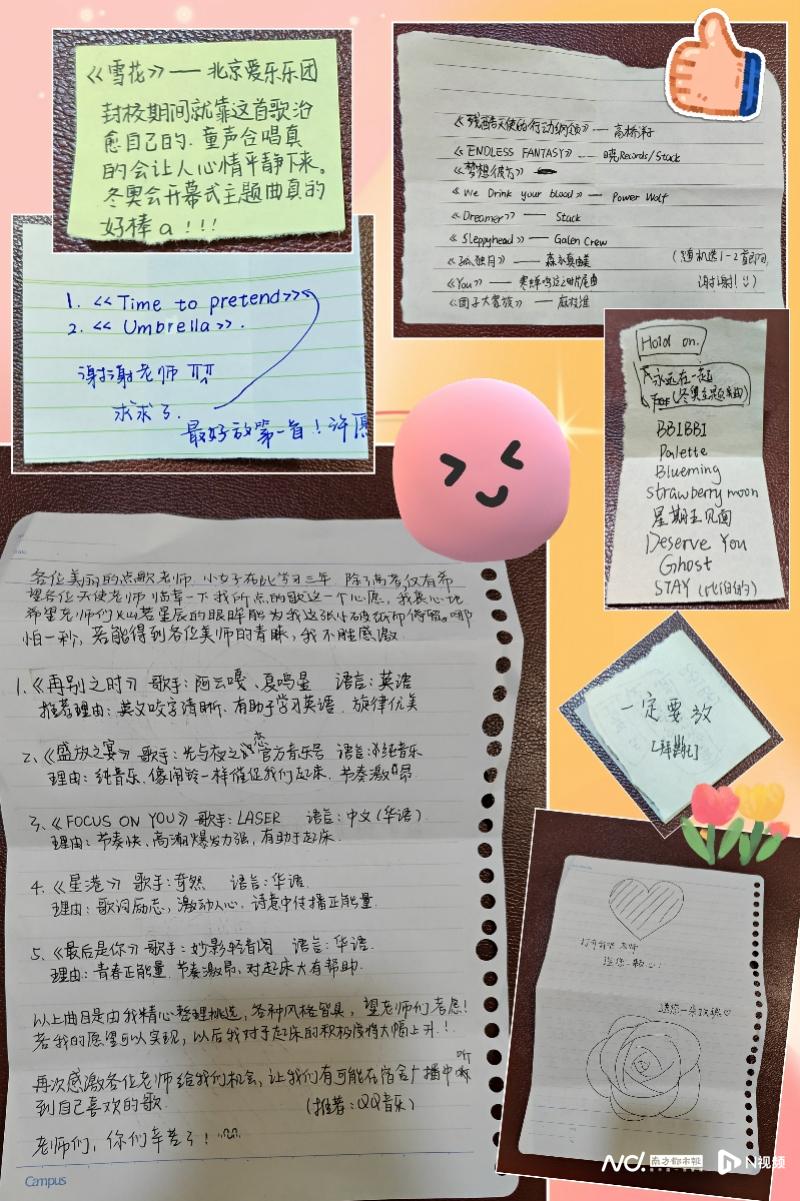 《雪花》—— 北京爱乐乐团
封校期间就靠这首歌治
愈自己的. 童声合唱真
的会让人心情平静下来。
冬奥会开幕式主题曲真的
好棒a!!!
《残酷天使的行动纲领》—— 高桥
《ENDLESS FANTASY》—— 暁Records/Stack
《梦想
《We Drink your blood》—— Power Wolf
《Dreamer》—— Stack
《Sleppyhead》—— Galen Crew
《孤独月》——
(随机选1-2首即可,
《You》—— 寒蝉鸣泣之时片尾曲
谢谢!
《团子大家族》—— 麻枝准
1. <<Time to pretend>>
2. << Umbrella>>.
谢谢老师
求求了.
最好放第一首!许愿
Hold on.
永远在一起
(冬奥主题曲)
BBIBBI
Palette
Blueming
Strawberry moon
星期五见面
Deserve You
Ghost
STAY (比伯的)
各位美丽的点歌老师. 小女子在此学习三年 除了高考仅有希
望各位天使老师临幸一下我所点的歌这一个心愿, 我衷心地
希望老师们灿若星辰的眼眸能为我这张小破纸而停留.哪
怕一秒, 若能得到各位美师的青睐, 我不胜感激.
1.《再别之时》 歌手:阿云嘎、夏鸣星 语言:英语
推荐理由:英文咬字清晰、有助于学习英语、旋律优美
2.《盛放之宴》 歌手:光与夜之恋官方音乐号 语言:纯音乐
理由:纯音乐、像闹铃一样催促我们起床、节奏激昂
3.《FOCUS ON YOU》 歌手:LASER 语言:中文(华语)
理由:节奏快、高潮爆发力强, 有助于起床.
4.《星港》 歌手:奇然 语言:华语
理由:歌词励志, 激动人心, 诗意中传播正能量.
5.《最后是你》 歌手:妙影轻音阁 语言:华语.
理由:青春正能量、节奏激昂、对起床大有帮助.
以上曲目是由我精心整理挑选, 各种风格皆具, 望老师们考虑!
若我的愿望可以实现, 以后我对于起床的积极度将大幅上升.!
再次感激各位老师给我们机会, 让我们有可能在宿舍广播中听
到自己喜欢的歌. (推荐:QQ音乐)
老师们, 你们辛苦了!
Campus
一定要放
送您一颗心!
送你一朵玫瑰
南方都市报 N视频